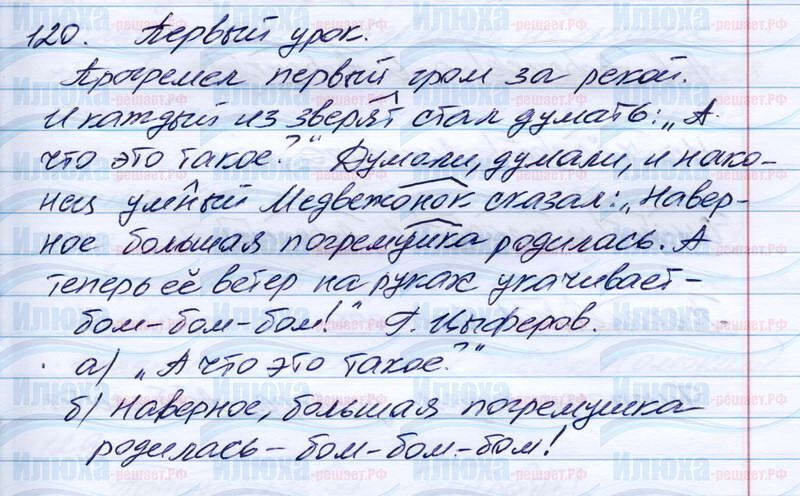 120. Первый урок.
Прогремел первый гром за рекой.
И каждый из зверят стал думать: „А
что это такое?“ Думали, думали, и нако-
нец умный Медвежонок сказал: „Навер-
ное большая погремушка родилась. А
теперь её ветер на руках укачивает-
бом-бом-бом!“ Г. Цыферов.
а) „А что это такое?“
б) Наверное, большая погремушка
родилась - бом-бом-бом!